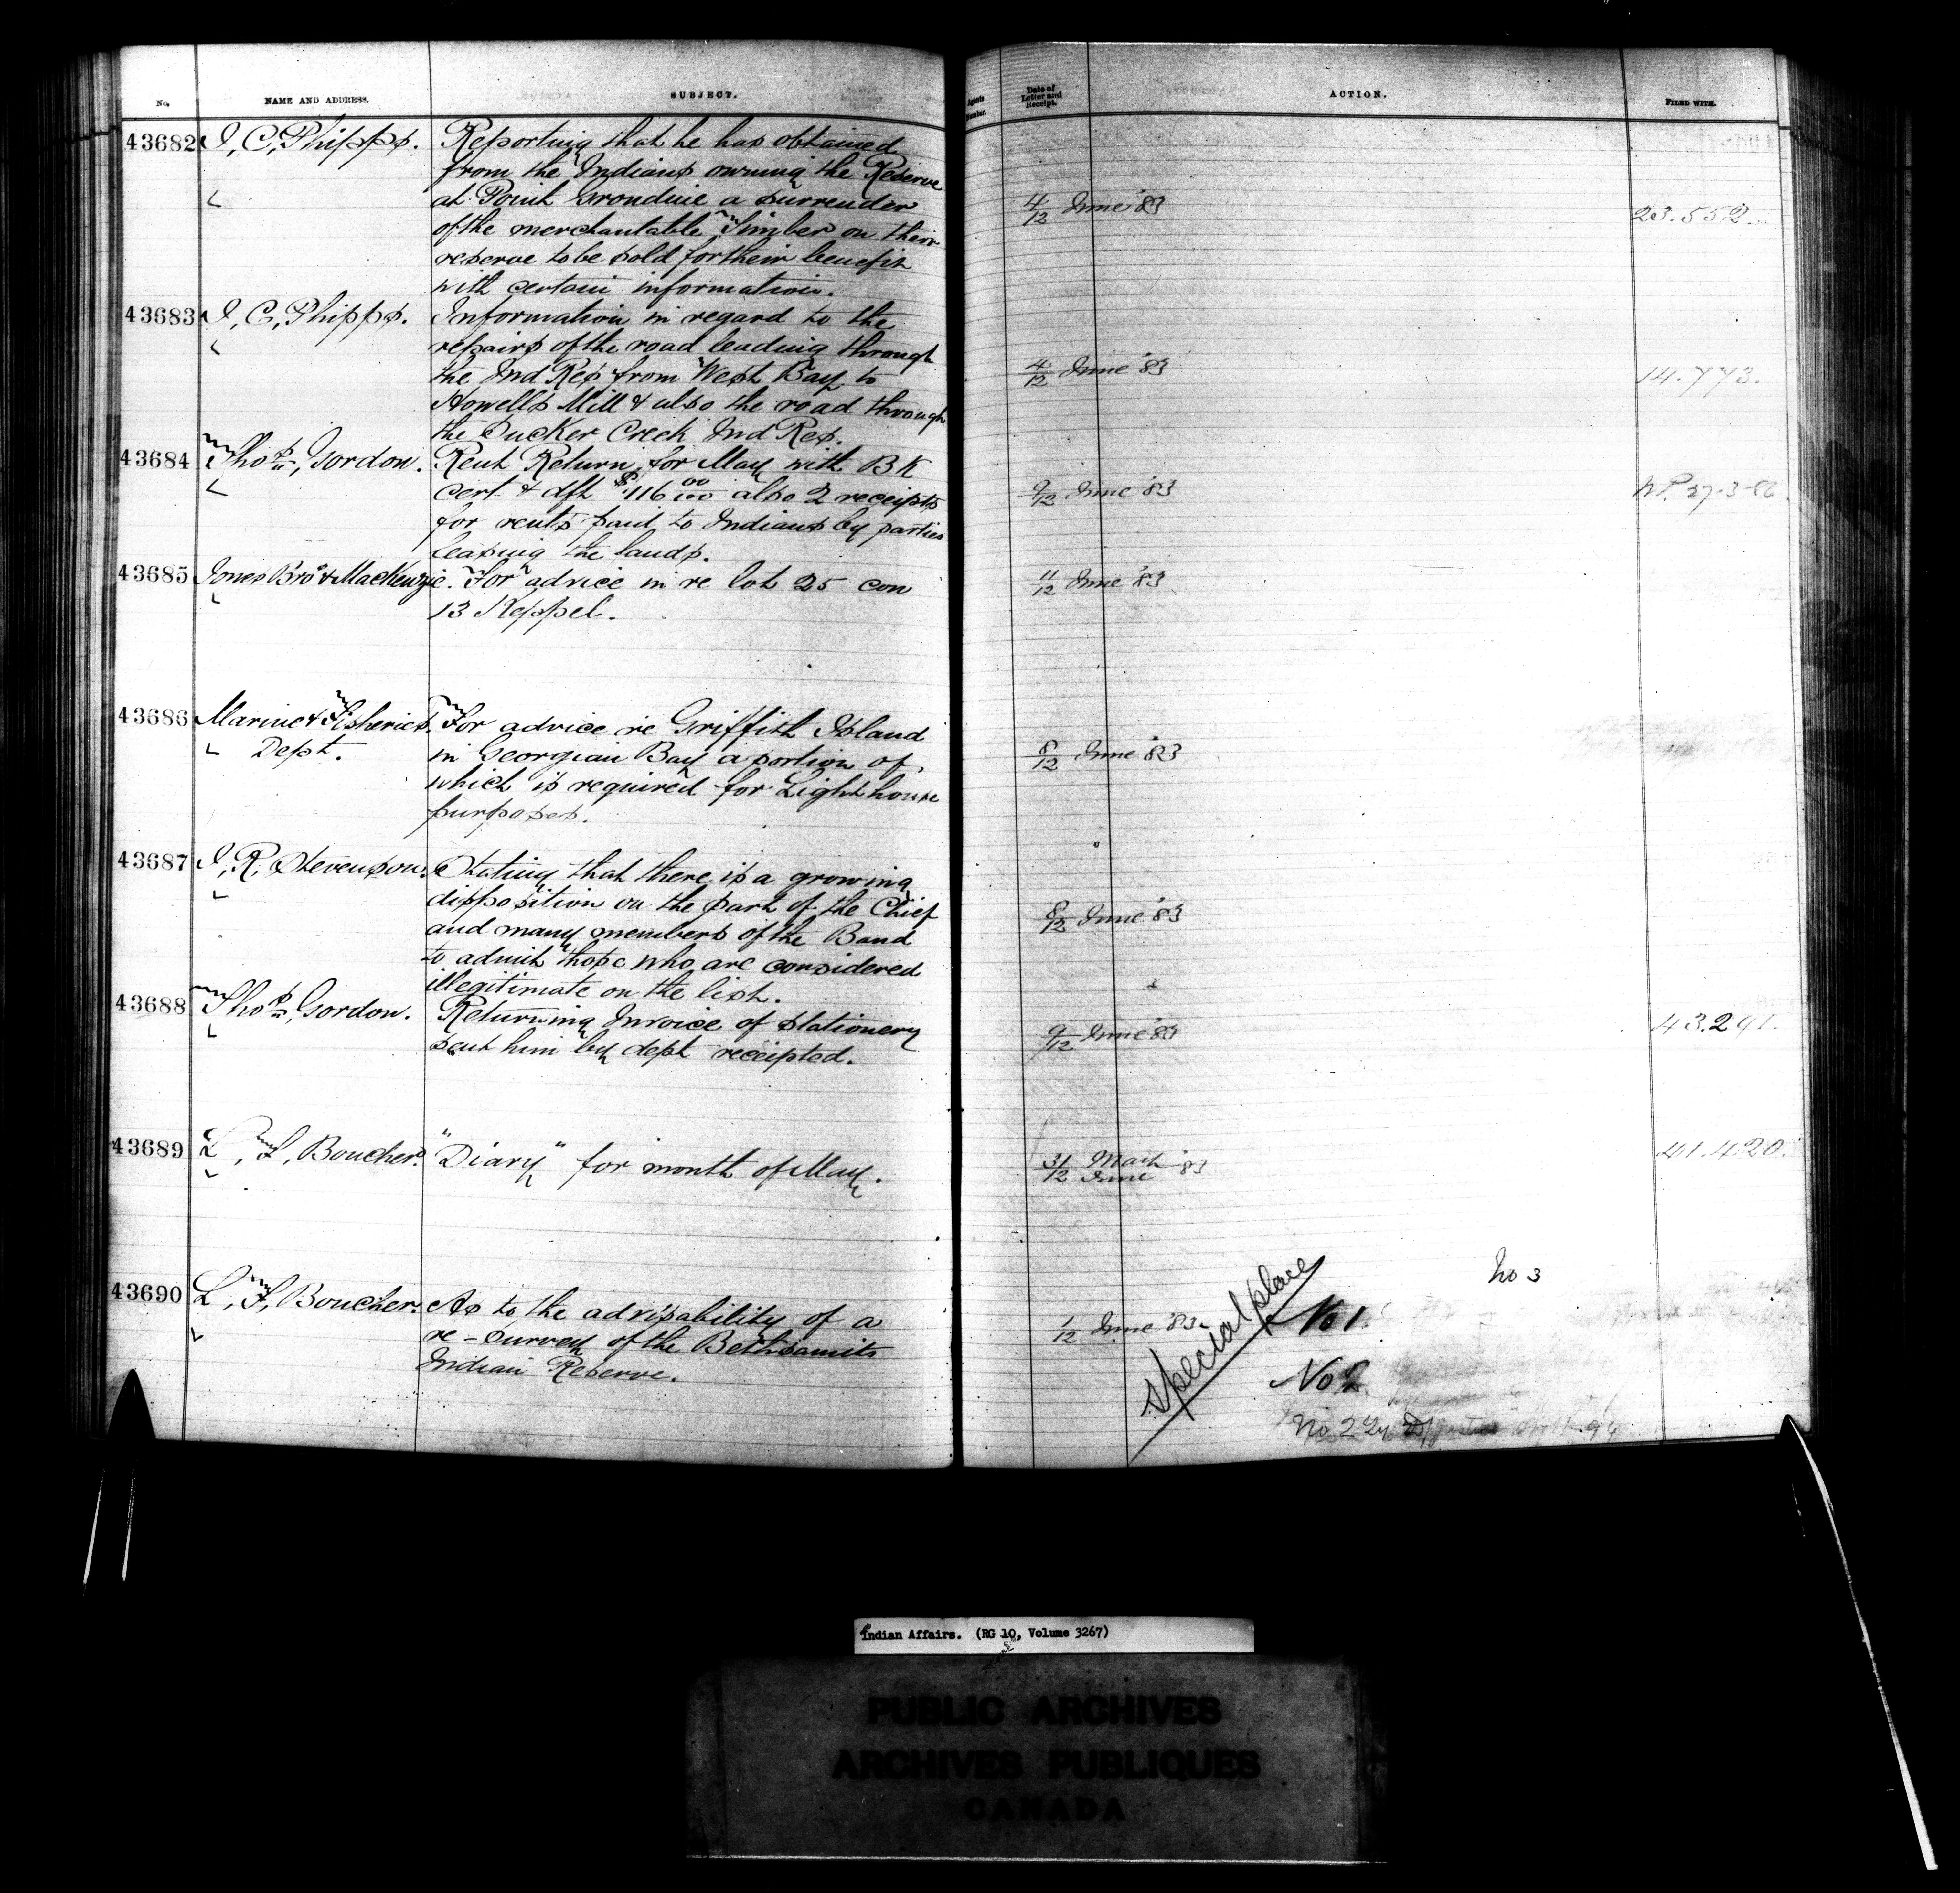 No. NAME AND ADDRESS. SUBJECT.
43682 J, C, Phipps. Reporting that he has obtained
from the Indians owning the Reserve
at Point Grondine a surrender
of the merchantable Timber on their
reserve to be sold for their benefit
with certain information.
43683 J, C, Phipps. Information in regard to the
repairs of the road leading through
the Ind Res from West Bay to
Howells Mill & also the road through
the Sucker Creek Ind Res.
43684 Thos, Gordon. Rent Return for May with BK
cert & dft $116 00/00 also 2 receipts
for rents paid to Indians by parties
leasing the lands.
43685 Jones Bros & MacKenzie. For advice in re lot 25 con
13 Keppel.
43686 Marine & Fisheries For advice re Griffith Island
Dept. in Georgian Bay a portion of
which is required for Lighthouse
purposes.
43687 J, R, Stevenson. Stating that there is a growing
disposition on the part of the Chief
and many members of the Band
to admit those who are considered
illegitimate on the list.
43688 Thos, Gordon. Returning Invoice of stationery
sent him by dept receipted.
43689 L, F, Boucher. "Diary" for month of May.
43690 L, F, Boucher. As to the advisability of a
re-survey of the Bethsamits
Indian Reserve.
Agents Number. Date of Letter and Receipt. ACTION. FILED WITH.
4/12 June '83 23.552
4/12 June '83 14.773.
9/12 June '83 27-3-86
11/12 June '83
8/12 June '83
8/12 June '83
9/12 June '83 43.291.
31/12 May June '83 41.420.
No 3
1/12 June '83. Special place No 1.
No 2
No 2
Indian Affairs. (RG 10, Volume 3267)
PUBLIC ARCHIVES
ARCHIVES PUBLIQUES
CANADA